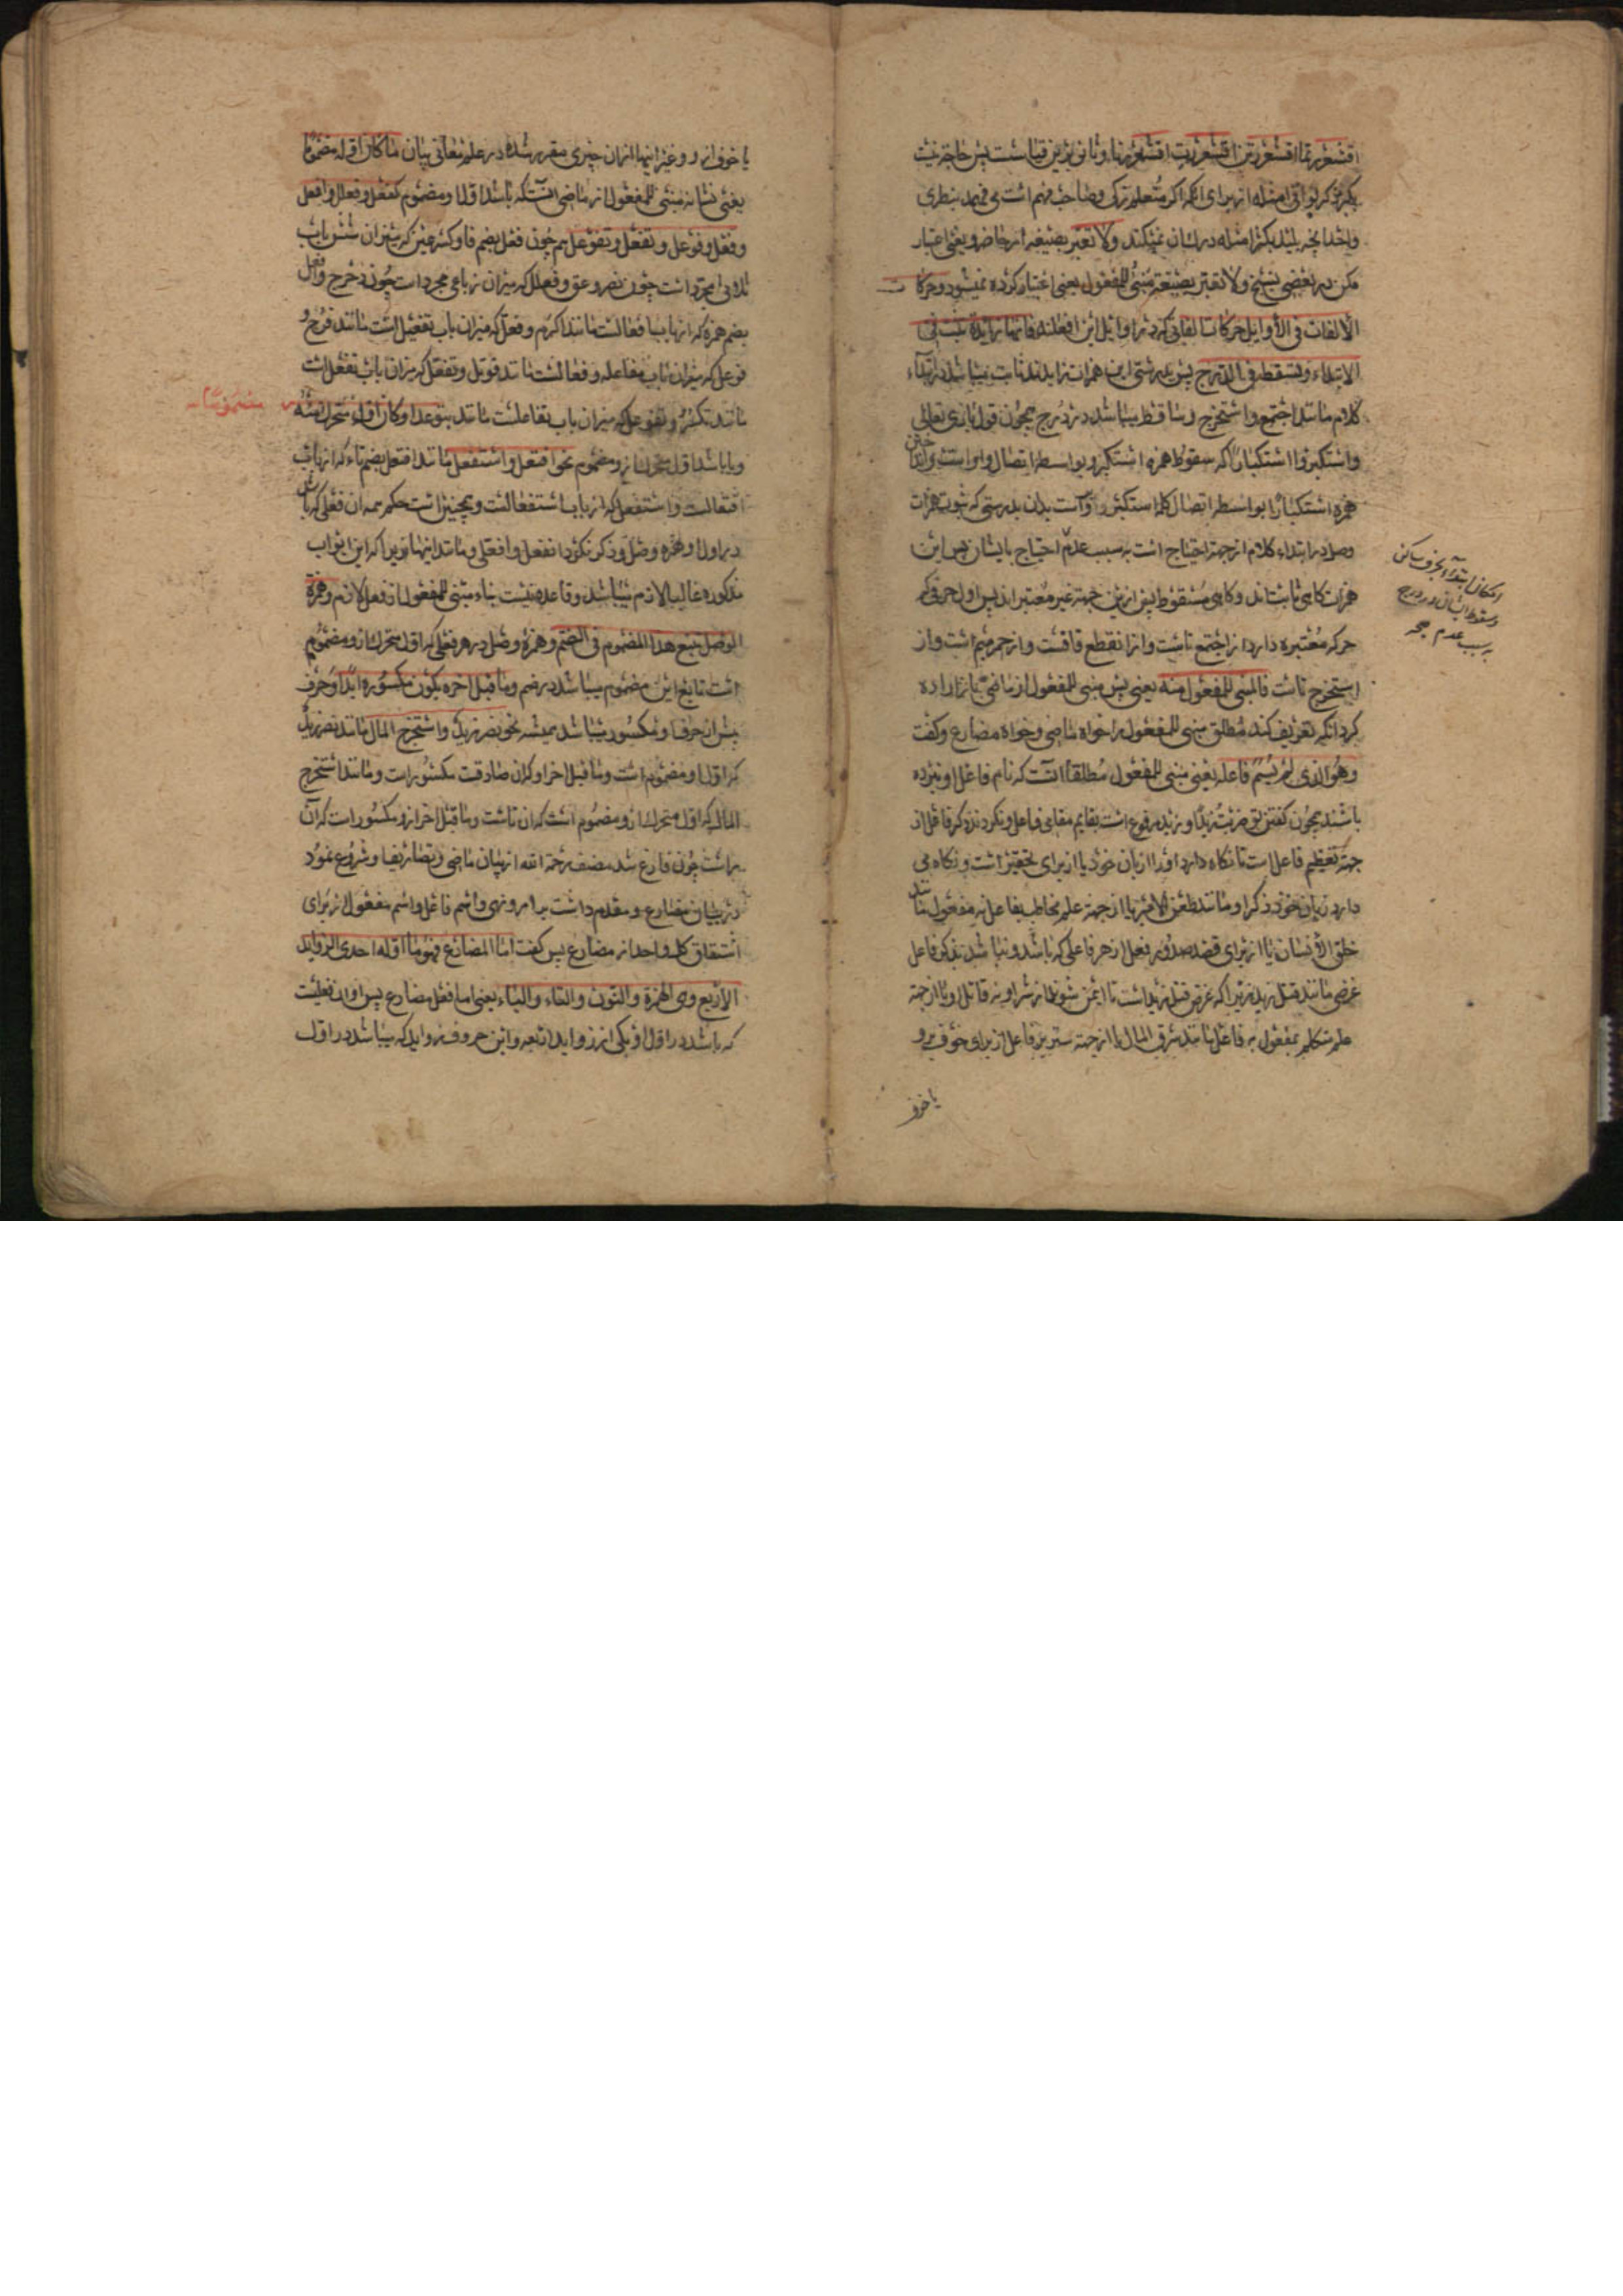 اقشعررتما اقشعررتن اقشعررت اقشعررنا و باقی برین قیاست پس حاجة نیست
بذکر بواقی امثله از برای آنکه اگر متعلم زکی و صاحب فهم است می فهمد بنظری
ولا تعتبر بصیغه
مکن در بعضی نسخ ولا تعتبر بصیغة مبنی للمفعول یعنی اعتبار کرده نمیشود و حرکات
الألفات فی الأوایل حرکات الفاتی که در اوایل این افعلند فانها زایدة تثبت فی
الابتداء و تسقط فی الدرج پس بدرستی این همزات زایدند ثابت میباشد در ابتداء
کلام مانند اجتمع و استخرج و ساقط میباشد در درج همچون قول باری تعالی
واستکبروا استکبارا که سقوط همزه استکبرو بواسطه اتصال واو است و
همزه استکبارا بواسطه اتصال کلمه استکبروا است بدان بدرستی که ثبوت همزات
وصل در ابتداء کلام از جهة احتیاج است به سبب عدم احتیاج بایشان پس این
همزات کاهی ثابتند و کاهی مسقوط پس ازین جهة غیر معتبراند پس اول حرفی که
حرکه معتبره دارد از اجتمع تاست و از انقطع قافست و از احمر میم است و از
استخرج تاست فالمبنی للمفعول منه یعنی پس مبنی للمفعول از ماضی باز اراده
کرد آنکه تعریف کند مطلق مبنی للمفعول را خواه ماضی و خواه مضارع و گفت
وهو الذی لم یسم فاعله یعنی مبنی للمفعول مطلقا آنست که نام فاعل او نبرده
باشند همچون کفتن تو ضربت زیدا و زید مرفوع است بقایم مقامی فاعل و نکردند ذکر فاعل از
جهة تعظیم فاعل است تا نکاه دارد او را از زبان خود یا از برای تحقیر است و نکاه می
دارد زبان خود از ذکر او مانند طعن الامیر یا از جهة علم مخاطب بفاعل به مفعول مانند
خلق الأنسان یا از برای قصد صدور فعل از هر فاعلی که باشد و نباشد بذکر فاعل
غرضی مانند قتل زید زیرا که غرض قتل زید است تا ایمن شوند از شر او نه قاتل او یا از جهة
علم متکلم بمفعول نه فاعل مانند سرق المال یا از جهة ستر بر فاعل از برای خوف برو
یا خوف
امکان ابتداء بحرف ساکن
و سقوط ایشان در درج
به سبب عدم
یا خوف ازو و غیر اینها از آن چیزی مقرر شده در علم معانی بیان ما کان اوله مضموما
یعنی نشانه مبنی للمفعول از ماضی آنست که باشد اول او مضموم کفعل و فعلل و افعل
و فعل و فوعل و تفعل و تفوعل هم چون فعل بضم فا و کسر عین که میزان شش باب
ثلاثی مجرد است چون نصر و فعلل که میزان رباعی مجرد است چون دحرج و افعل
بضم همزه که از باب افعالست مانند اکرم و فعل که میزان باب تفعیل است مانند فرح و
فوعل که میزان باب مفاعله و فعالست مانند قوتل و تفعل که میزان باب تفعل است
مانند تکسر و تفوعل که میزان باب تفاعلست مانند تبوعد او کان اول متحرک منه مضموما
و یا باشد اول متحرک ازو مضموم نحو افتعل و استفعل مانند افتعل بضم تاء که از باب
افتعالست و استفعل که از باب استفعالست و همچنین است حکم همه آن فعلی که باشد
در اول او همزه وصل و ذکر نکرد انفعل و افعل و مانند اینها زیرا که این ابواب
مذکوره غالبا لازم میباشد و قاعده نیست بناء مبنی للمفعول از فعل لازم و همزة
الوصل تتبع هذا المضموم فی الضم و همزه وصل در هر فعلی که اول متحرک ازو مضموم
است تابع این مضموم میباشد در ضم و ما قبل اخره یکون مکسورا ابدا و حرف
پیش از حرف او مکسور میباشد همیشه نحو نصر زید و استخرج المال مانند نصر زید
که اول او مضموم است و ما قبل اخر او که آن صادست مکسور است و مانند استخرج
المال که اول متحرک ازو مضموم است که آن تاست و ما قبل اخر ازو مکسور است که آن
راست چون فارغ شد مصنف رحمة الله از بیان ماضی و تصاریف او شروع نمود
در بیان مضارع و مقدم داشت بر امر و نهی و اسم فاعل و اسم مفعول از برای
اشتقاق کل واحد از مضارع پس کفت اما المضارع فهو ما اوله احدی الزواید
الأربع وهی الهمزة والنون والتاء والیاء یعنی اما فعل مضارع پس او آن فعلیست
که باشد در اول او یکی از زواید اربعه و این حروف زواید که میباشد در اول